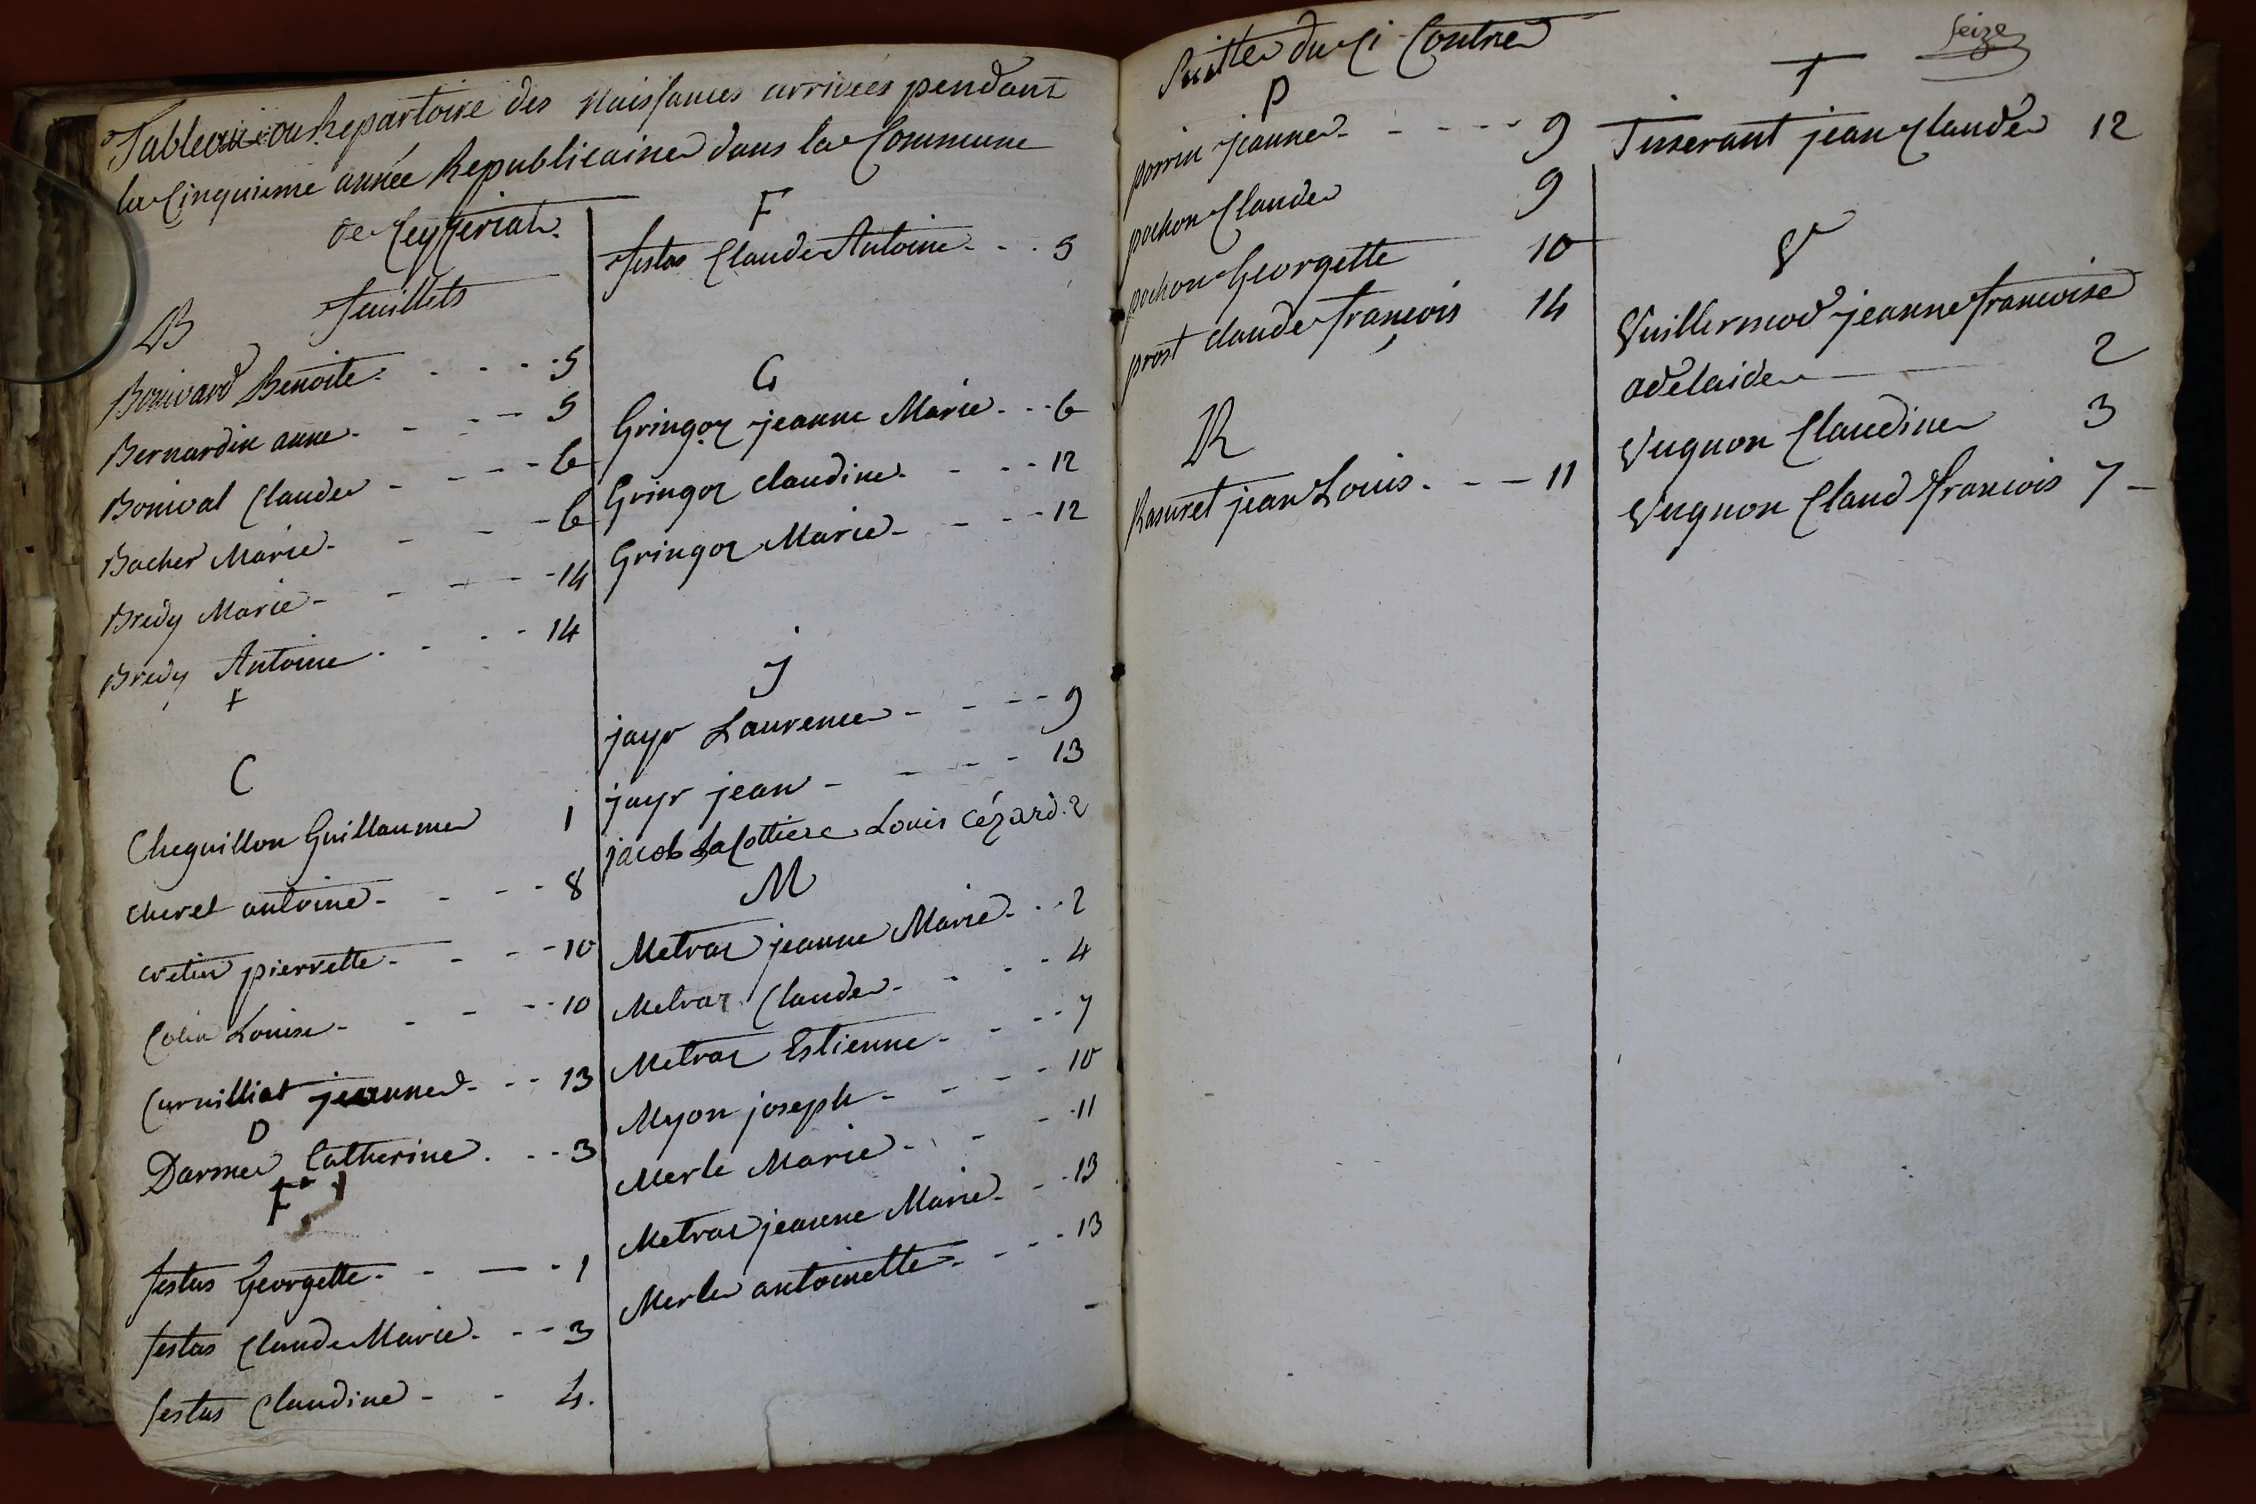 Tableau ou Repartoire des Naissances arrivées pendant
la Cinquieme année Republicaine dans la Commune
de Ceyzeriat.
B Feuillets
Bonivard Benoite 5
Bernardin anne 5
Bonival Claude 6
Bacher Marie 6
Bredy Marie 14
Bredy Antoine 14
C
Cheguillon Guillaume 1
Chevet antoine 8
Cretin pierrette 10
Colin Louise 10
Curnilliat jeanne 13
D
Darme Catherine 3
F
festas Georgette 1
festas Claude Marie 3
festas Claudine 4.
F
festas Claude Antoine 5
G
Gringoz jeanne Marie 6
Gringoz claudine 12
Gringoz Marie 12
j
jayr Laurence 9
jayr jean 13
jacob La Cottiere Louis Cézard. 2
M
Metraz jeanne Marie 2
Metraz Claude 4
Metraz Estienne 7
Myon joseph 10
Merle Marie 11
Metraz jeanne Marie 13
Merle antoinette 13
Suitte du Ci Contre
P
perrin jeanne 9
pochon Claude 9
pochon Georgette 10
prost claude françois 14
R
Rasuret jean Louis 11
Seize
T
Tisserant jean Claude 12
V
Vuillermod jeanne francoise
adelaide 2
Vugnon Claudine 3
Vugnon Claud francois 7